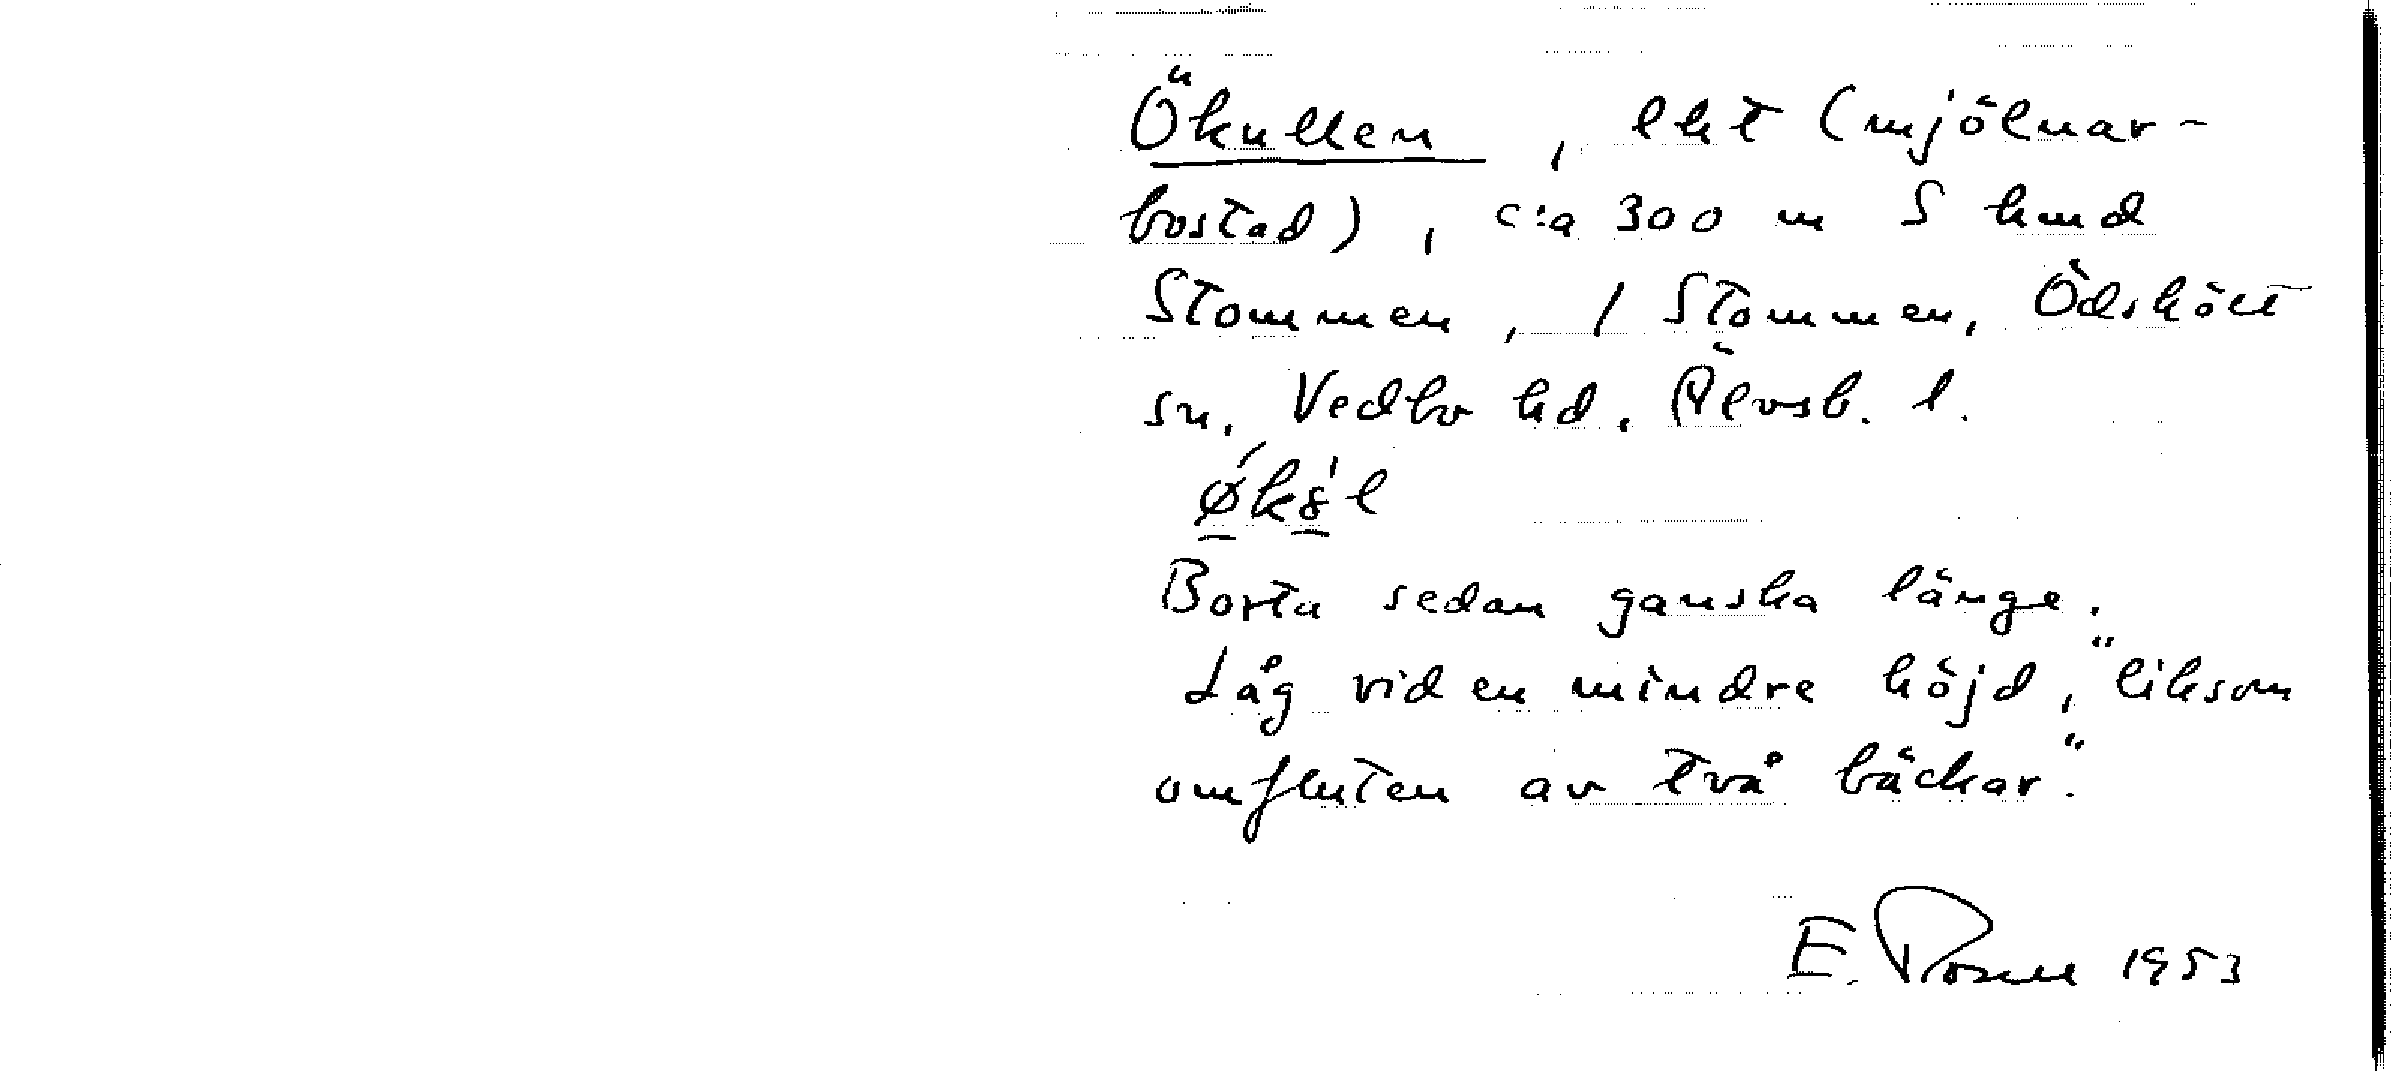 Ökullen, lht (mjölnar-
bostad), c:a 300 m S hmd
Stommen, 1 Stommen, Ödskölt
sn, Vedbo hd, Älvsb. l.
Borta sedan ganska länge.
Låg vid en mindre höjd, "liksom
omfluten av två bäckar".
E. Rosell 1953